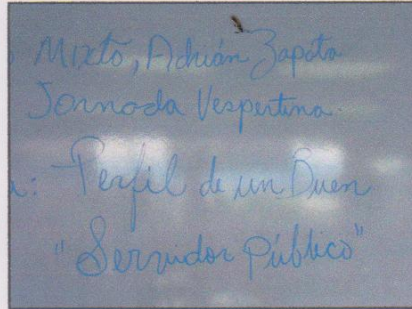 Mixto, Adrián Zapata
Jornada Vespertina.
: Perfil de un Buen
"Servidor Público"